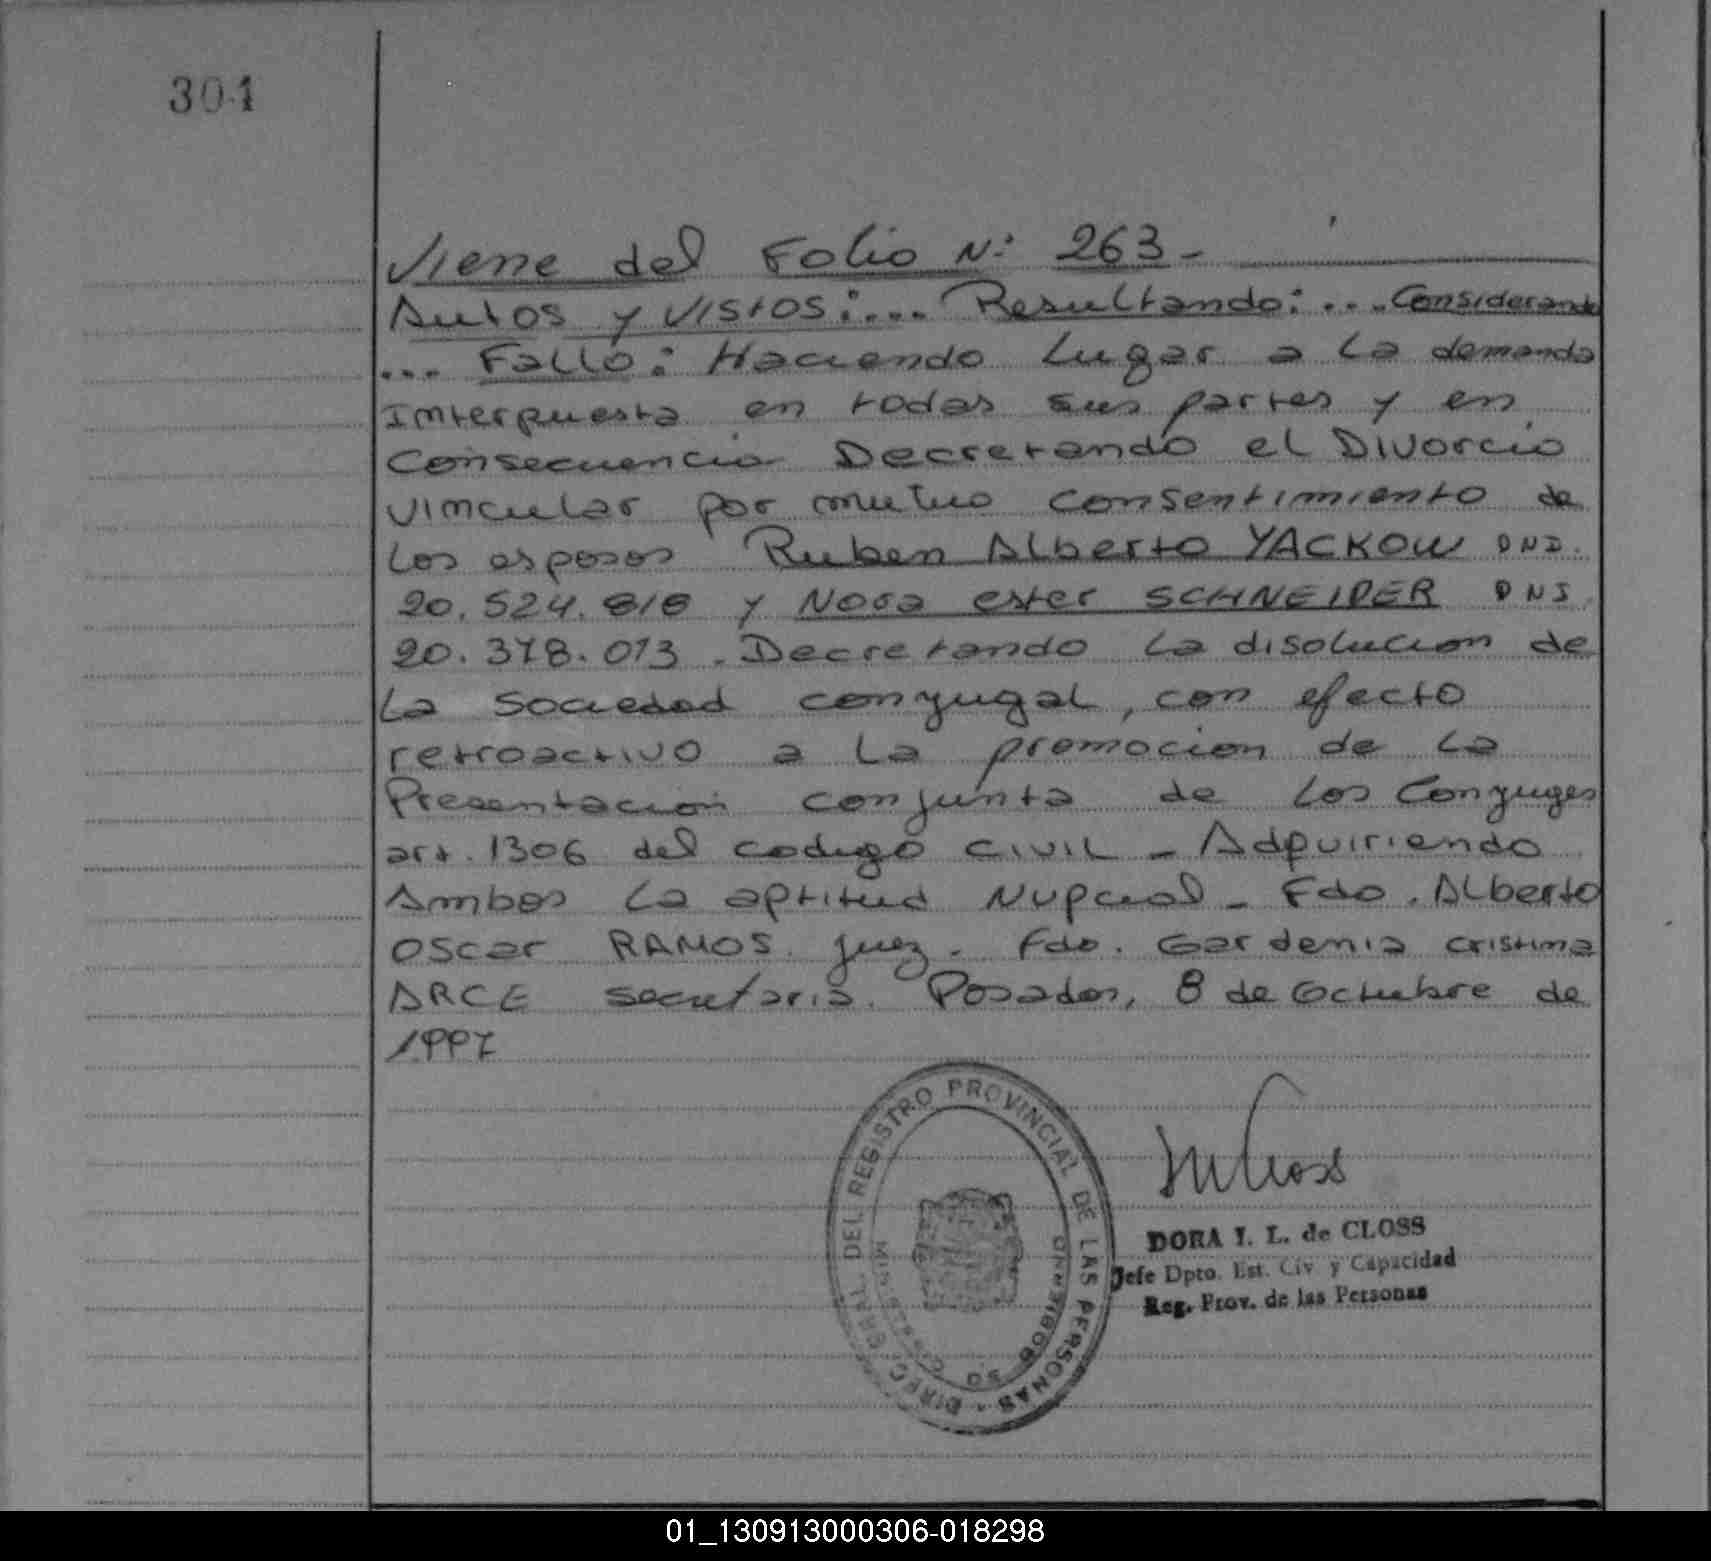 301
Viene del Folio N: 263-
Autos y Vistos:... Resultando:... Considerando
... Fallo: Haciendo Lugar a La demanda
Interpuesta en todas sus partes y en
Consecuencia Decretando el Divorcio
Vincular por mutuo consentimiento de
Los esposos Ruben Alberto YACKOW DNI.
20.524.818 y Nora ester SCHNEIDER DNI
20.378.013. Decretando La disolucion de
La Sociedad conyugal, con efecto
retroactivo a La promocion de La
Presentacion conjunta de Los Conyuges
art. 1306 del codigo CIVIL - Adquiriendo
Ambos La aptitud Nupcial - Fdo. Alberto
Oscar RAMOS juez. Fdo. Gardenia cristina
ARCE secretaria. Posadas, 8 de Octubre de
1997
DIREC. GRAL. DEL REGISTRO PROVINCIAL DE LAS PERSONAS
DORA I. L. de CLOSS
Jefe Dpto. Est. Civ. y Capacidad
Reg. Prov. de las Personas
01_130913000306-018298